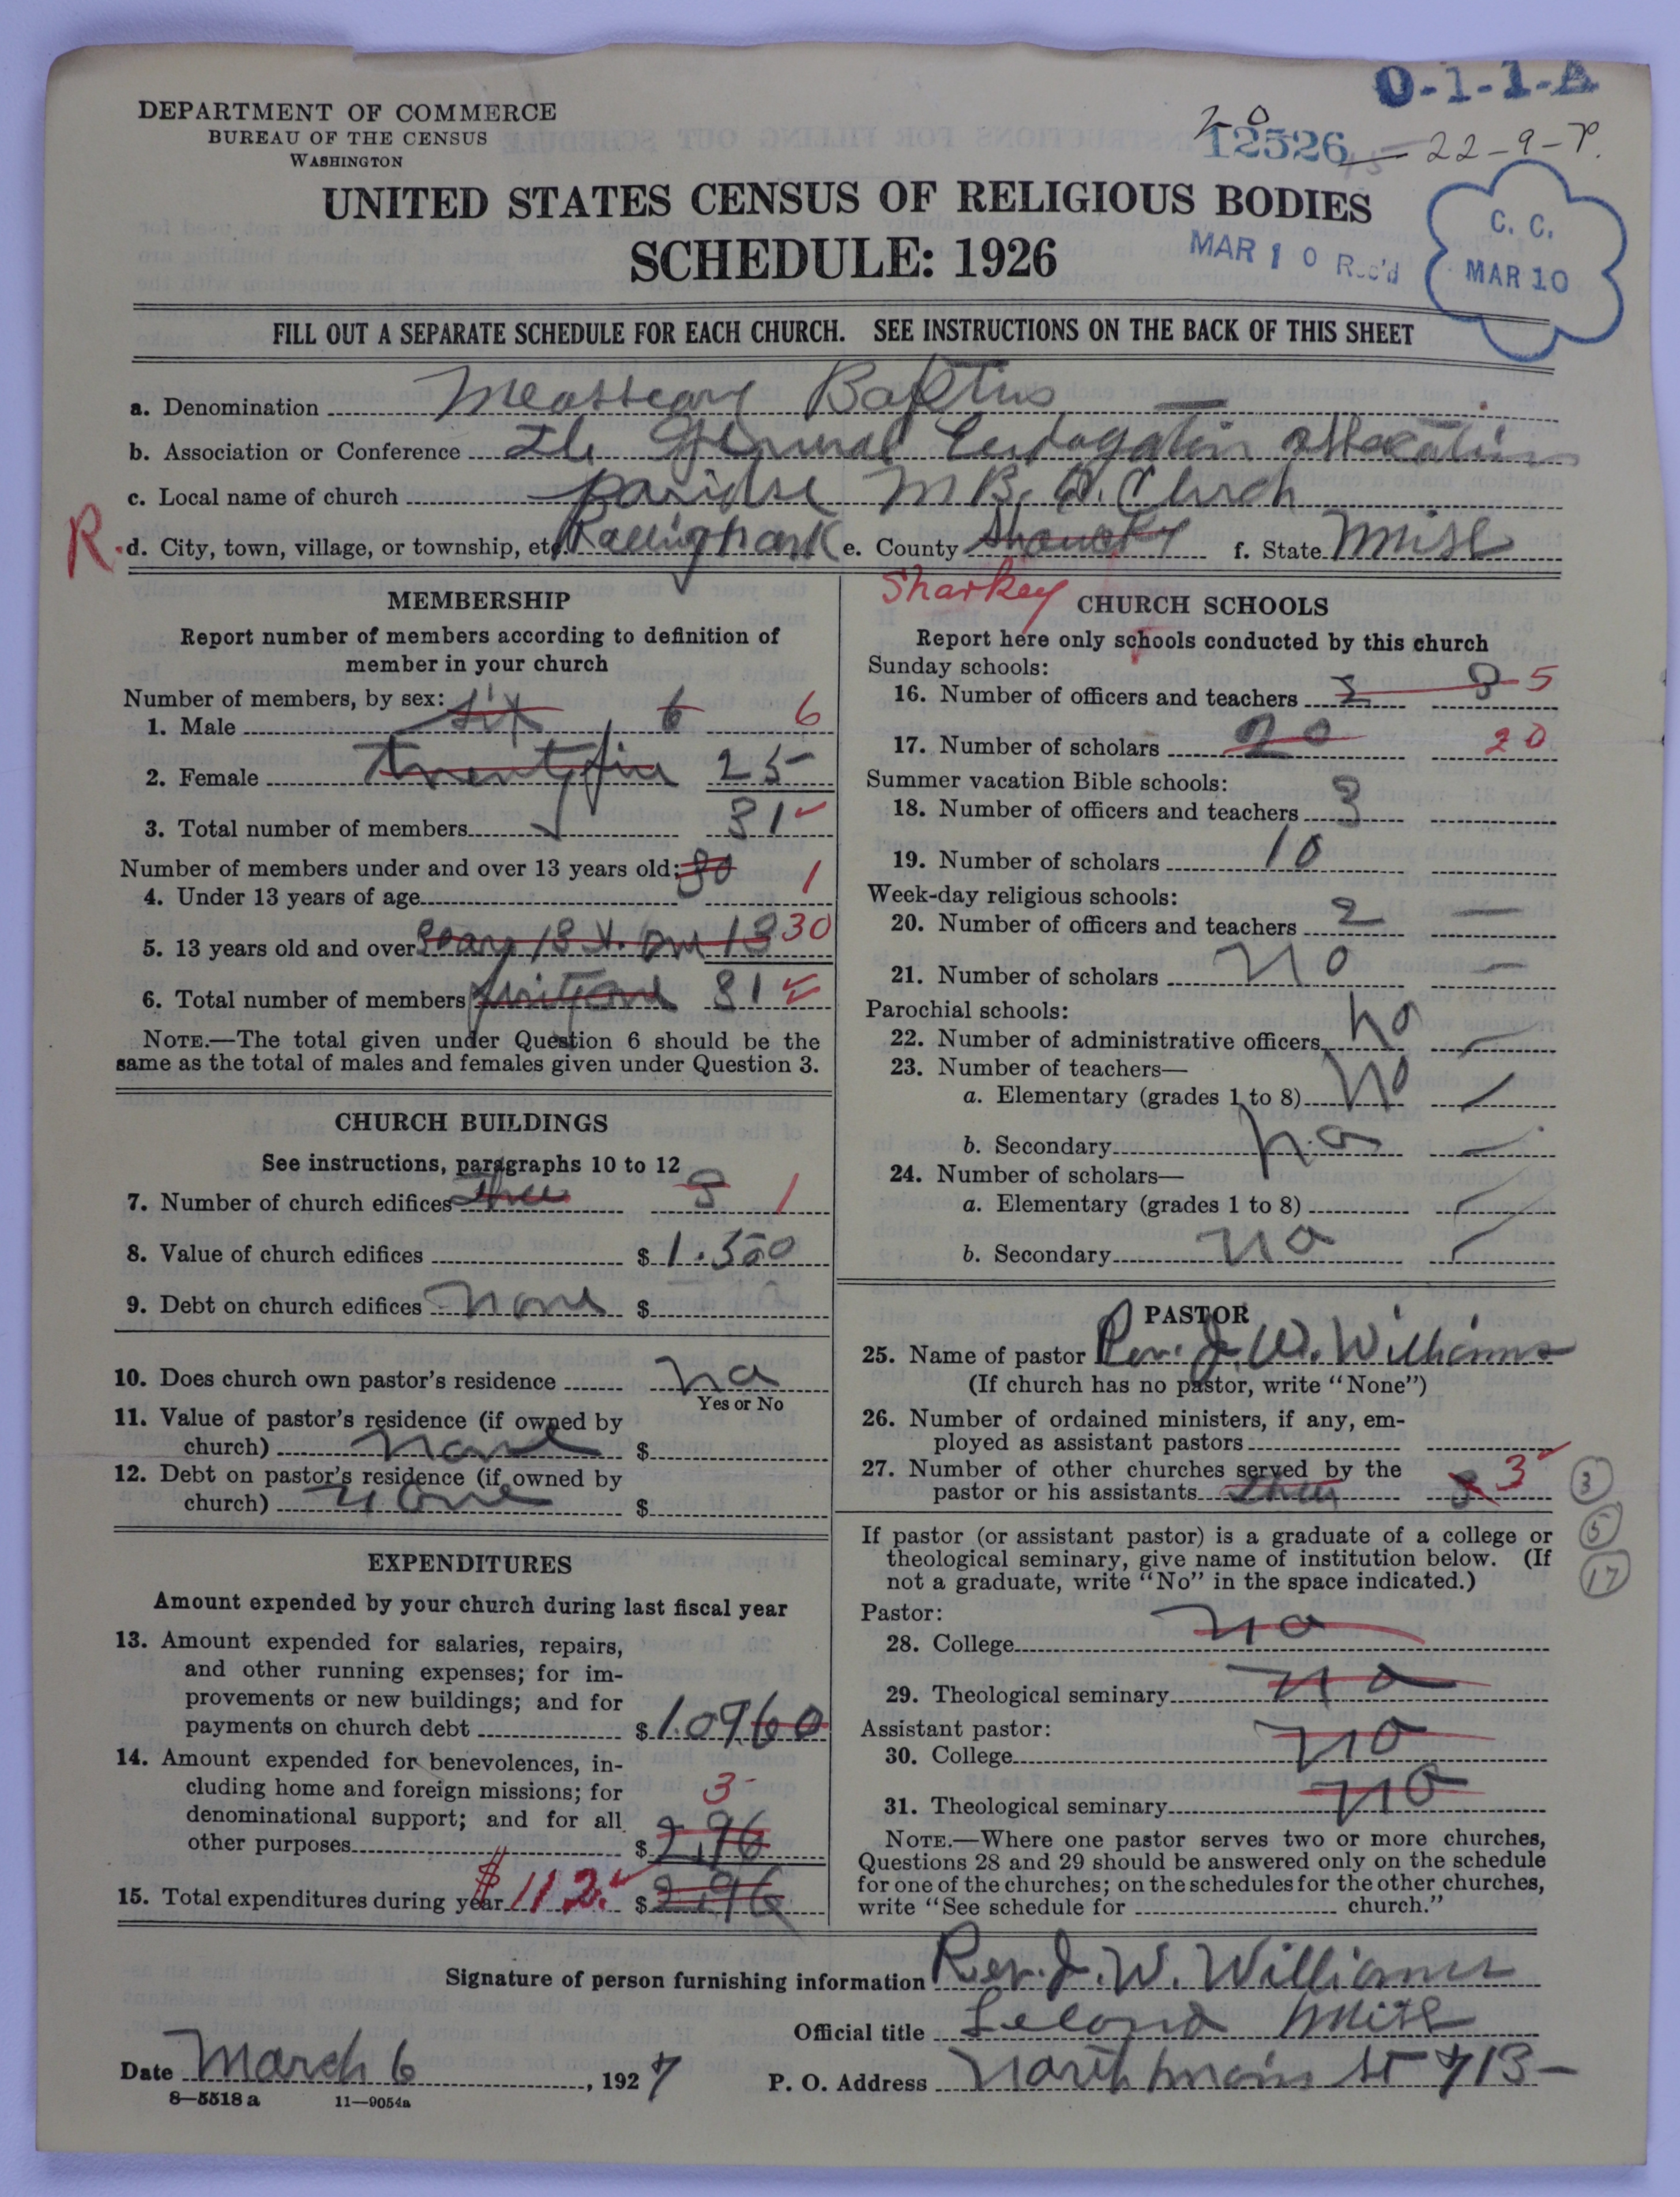 O-1-1-A
DEPARTMENT OF COMMERCE
BUREAU OF THE CENSUS
WASHINGTON
20
12526 — 22-9-P.
UNITED STATES CENSUS OF RELIGIOUS BODIES
SCHEDULE: 1926
MAR 10 Rec'd
C. C.
MAR 10
FILL OUT A SEPARATE SCHEDULE FOR EACH CHURCH. SEE INSTRUCTIONS ON THE BACK OF THIS SHEET
a. Denomination Baptius
b. Association or Conference General
c. Local name of church paridse M B.
R d. City, town, village, or township, etc. e. County f. State Miss
Sharkey
MEMBERSHIP
Report number of members according to definition of
member in your church
Number of members, by sex:
1. Male six 6 6
2. Female twentyfiu 25
3. Total number of members 31
Number of members under and over 13 years old: 30
4. Under 13 years of age 1
5. 13 years old and over 18 13 30
6. Total number of members 31
NOTE.—The total given under Question 6 should be the
same as the total of males and females given under Question 3.
CHURCH BUILDINGS
See instructions, paragraphs 10 to 12
7. Number of church edifices three 3 1
8. Value of church edifices $ 1.500
9. Debt on church edifices none $
10. Does church own pastor's residence no
Yes or No
11. Value of pastor's residence (if owned by
church) none $
12. Debt on pastor's residence (if owned by
church) none $
EXPENDITURES
Amount expended by your church during last fiscal year
13. Amount expended for salaries, repairs,
and other running expenses; for im-
provements or new buildings; and for
payments on church debt $ 1.0960
14. Amount expended for benevolences, in-
cluding home and foreign missions; for 3
denominational support; and for all
other purposes $ 2,96
15. Total expenditures during year $112. $ 2,96
CHURCH SCHOOLS
Report here only schools conducted by this church
Sunday schools:
16. Number of officers and teachers 5
17. Number of scholars 20 20
Summer vacation Bible schools:
18. Number of officers and teachers 3
19. Number of scholars 10
Week-day religious schools:
20. Number of officers and teachers 2 —
21. Number of scholars no —
Parochial schools:
22. Number of administrative officers no
23. Number of teachers—
a. Elementary (grades 1 to 8) no
b. Secondary no
24. Number of scholars—
a. Elementary (grades 1 to 8)
b. Secondary no
PASTOR
25. Name of pastor Rev. J. W. Williams
(If church has no pastor, write "None")
26. Number of ordained ministers, if any, em-
ployed as assistant pastors
27. Number of other churches served by the
pastor or his assistants three 3 3
3
5
17
If pastor (or assistant pastor) is a graduate of a college or
theological seminary, give name of institution below. (If
not a graduate, write "No" in the space indicated.)
Pastor:
28. College no
29. Theological seminary no
Assistant pastor:
30. College no
31. Theological seminary no
NOTE.—Where one pastor serves two or more churches,
Questions 28 and 29 should be answered only on the schedule
for one of the churches; on the schedules for the other churches,
write "See schedule for church."
Signature of person furnishing information Rev. J. W. Williams
Official title Leland Miss
Date March 6, 1927 P. O. Address North main St 713
8—5518 a 11—9054a